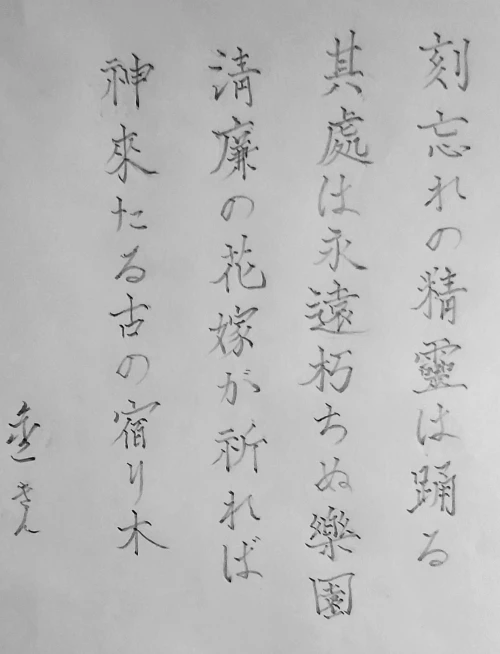 刻忘れの精靈は踊る
其處は永遠朽ちぬ樂園
淸廉の花嫁が祈れば
神來たる古の宿り木
きん